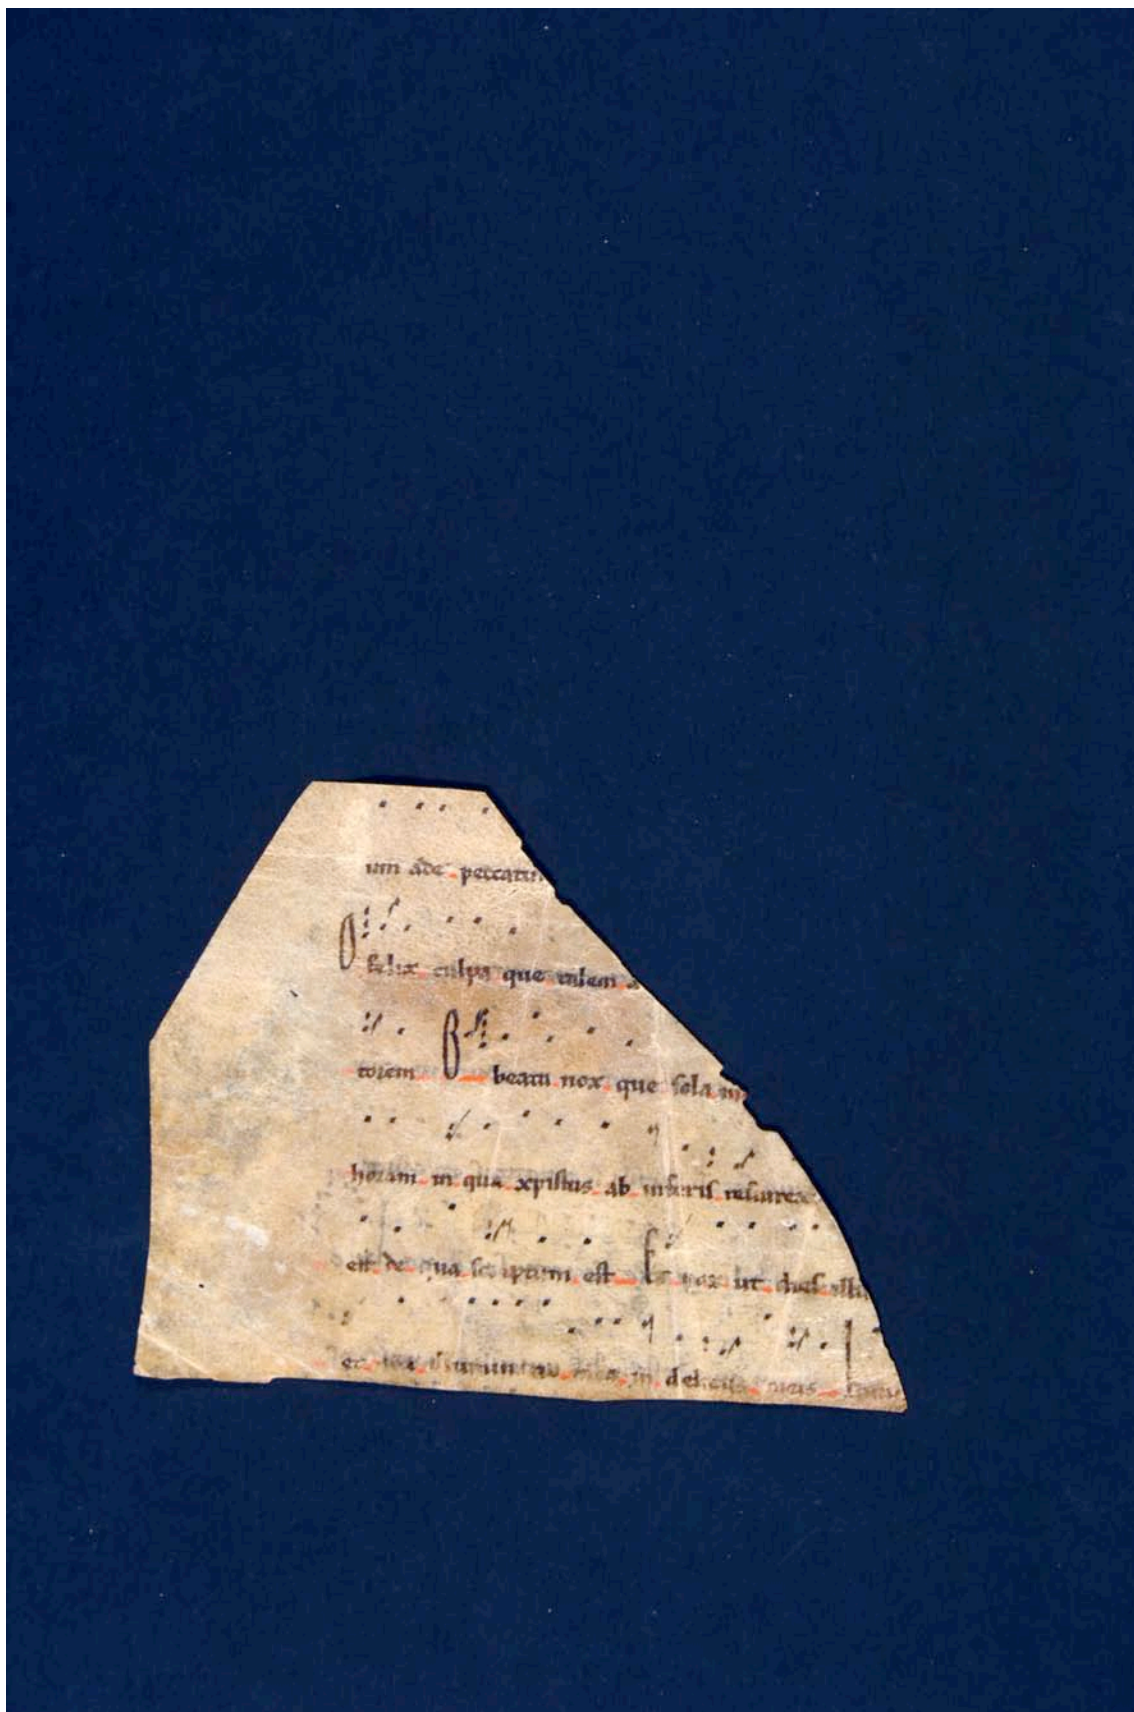 um ade peccatu
O felix culpa que talem a
torem O beata nox que sola m
horam in qua xpistus ab inferis resurrex
est de qua scriptum est Et nox ut dies illu
et nox mea in deliciis meis